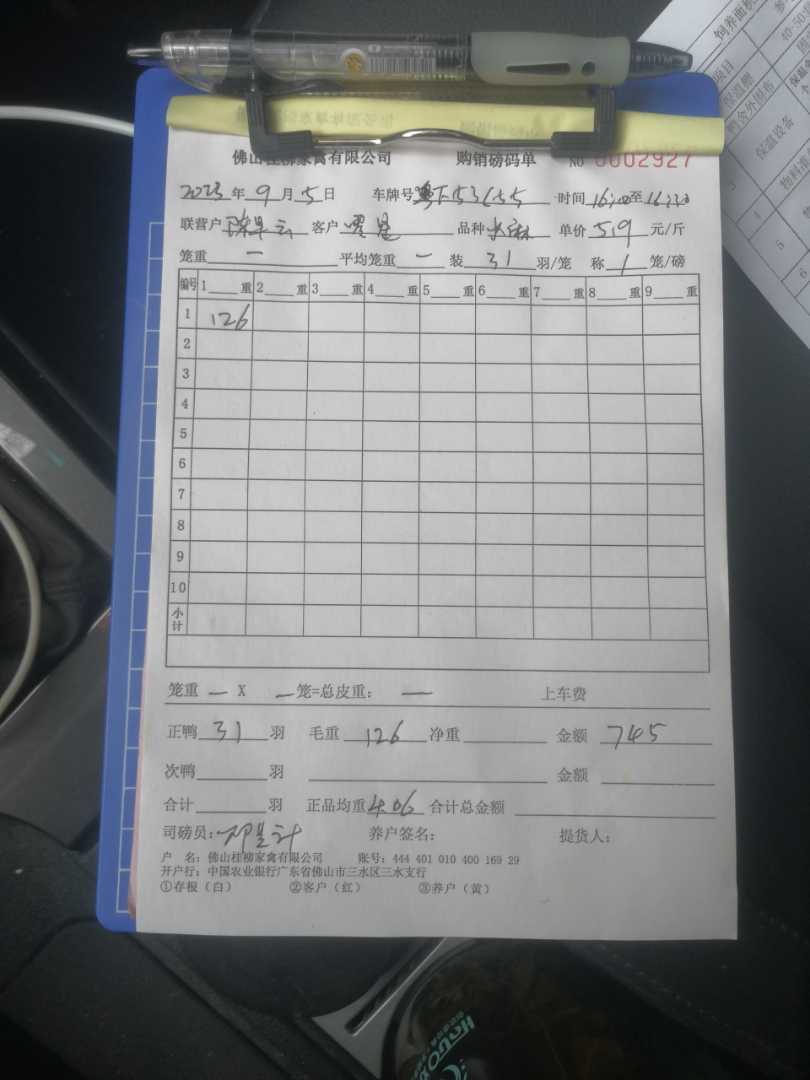 佛山桂柳家禽有限公司 购销磅码单 NO 0002927
2023年9月5日 车牌号 53655 时间16:00至16:30
联营户 客户 品种 单价5.9元/斤
笼重 一 平均笼重 一 装 31 羽/笼 称 1 笼/磅
编号 1 重 2 重 3 重 4 重 5 重 6 重 7 重 8 重 9 重
1 126
2
3
4
5
6
7
8
9
10
小计
笼重 — X — 笼=总皮重: — 上车费
正鸭 31 羽 毛重 126 净重 金额 745
次鸭 羽 金额
合计 羽 正品均重 4.06 合计总金额
司磅员: 养户签名: 提货人:
户 名: 佛山桂柳家禽有限公司 账号: 444 401 010 400 169 29
开户行: 中国农业银行广东省佛山市三水区三水支行
①存根(白) ②客户(红) ③养户(黄)
饲养面积
保温设备
3
4
5
6